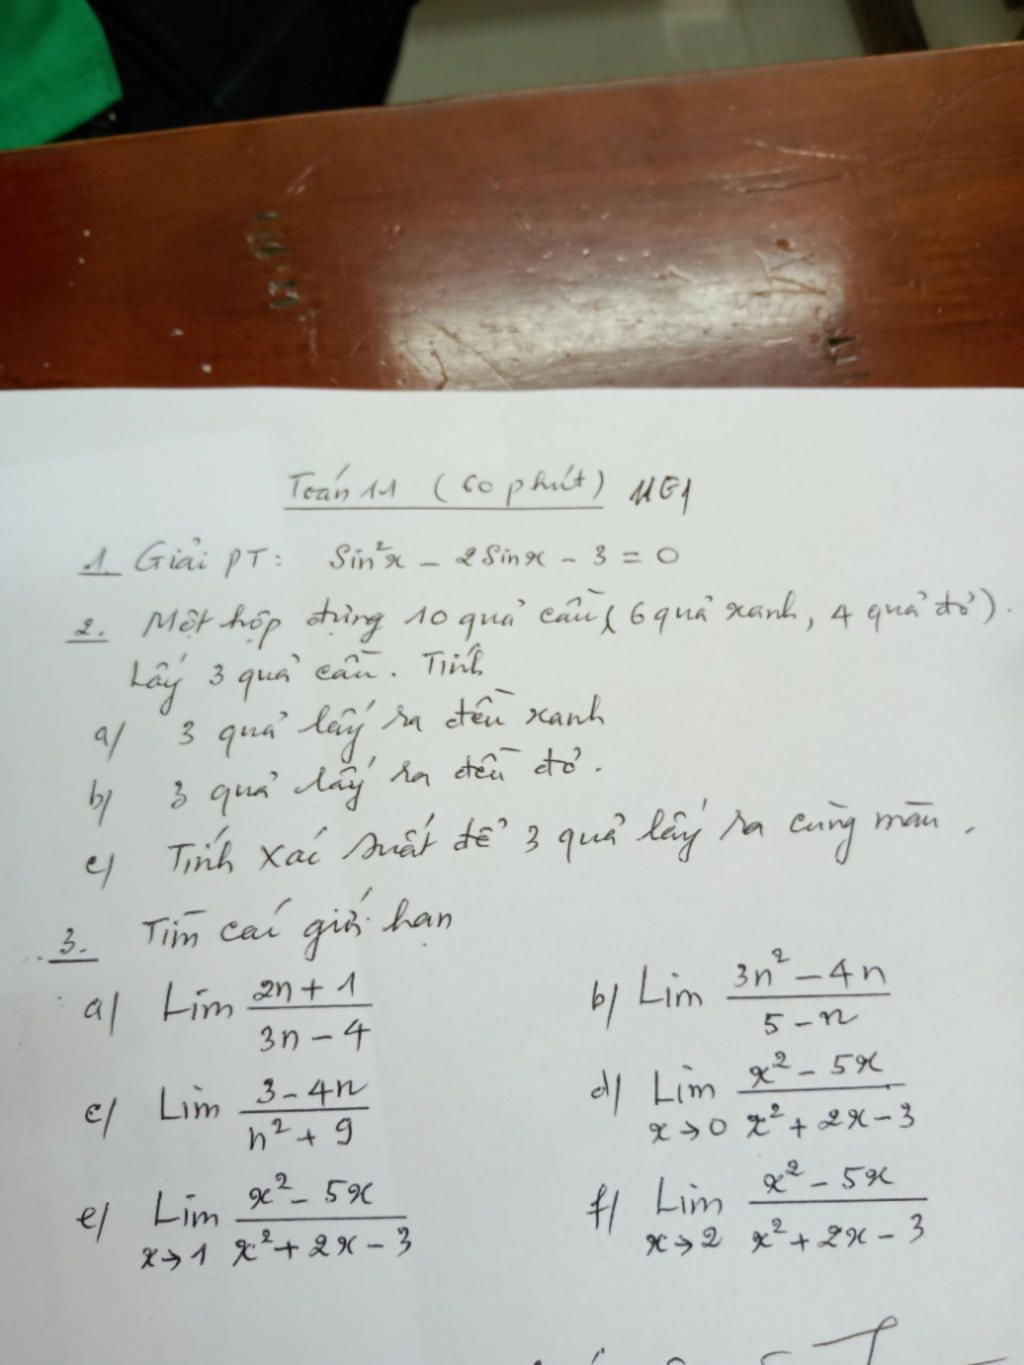 Toán 11 (60 phút) 11E1
1. Giải PT: Sin²x - 2Sinx - 3 = 0
2. Một hộp đựng 10 quả cầu (6 quả xanh, 4 quả đỏ).
Lấy 3 quả cầu. Tính
a/ 3 quả lấy ra đều xanh
b/ 3 quả lấy ra đều đỏ.
c/ Tính xác suất để 3 quả lấy ra cùng màu.
3. Tìm các giới hạn
a/ Lim (2n + 1)/(3n - 4) b/ Lim (3n² - 4n)/(5 - n)
c/ Lim (3 - 4n)/(n² + 9) d/ Lim x→0 (x² - 5x)/(x² + 2x - 3)
e/ Lim x→1 (x² - 5x)/(x² + 2x - 3) f/ Lim x→2 (x² - 5x)/(x² + 2x - 3)